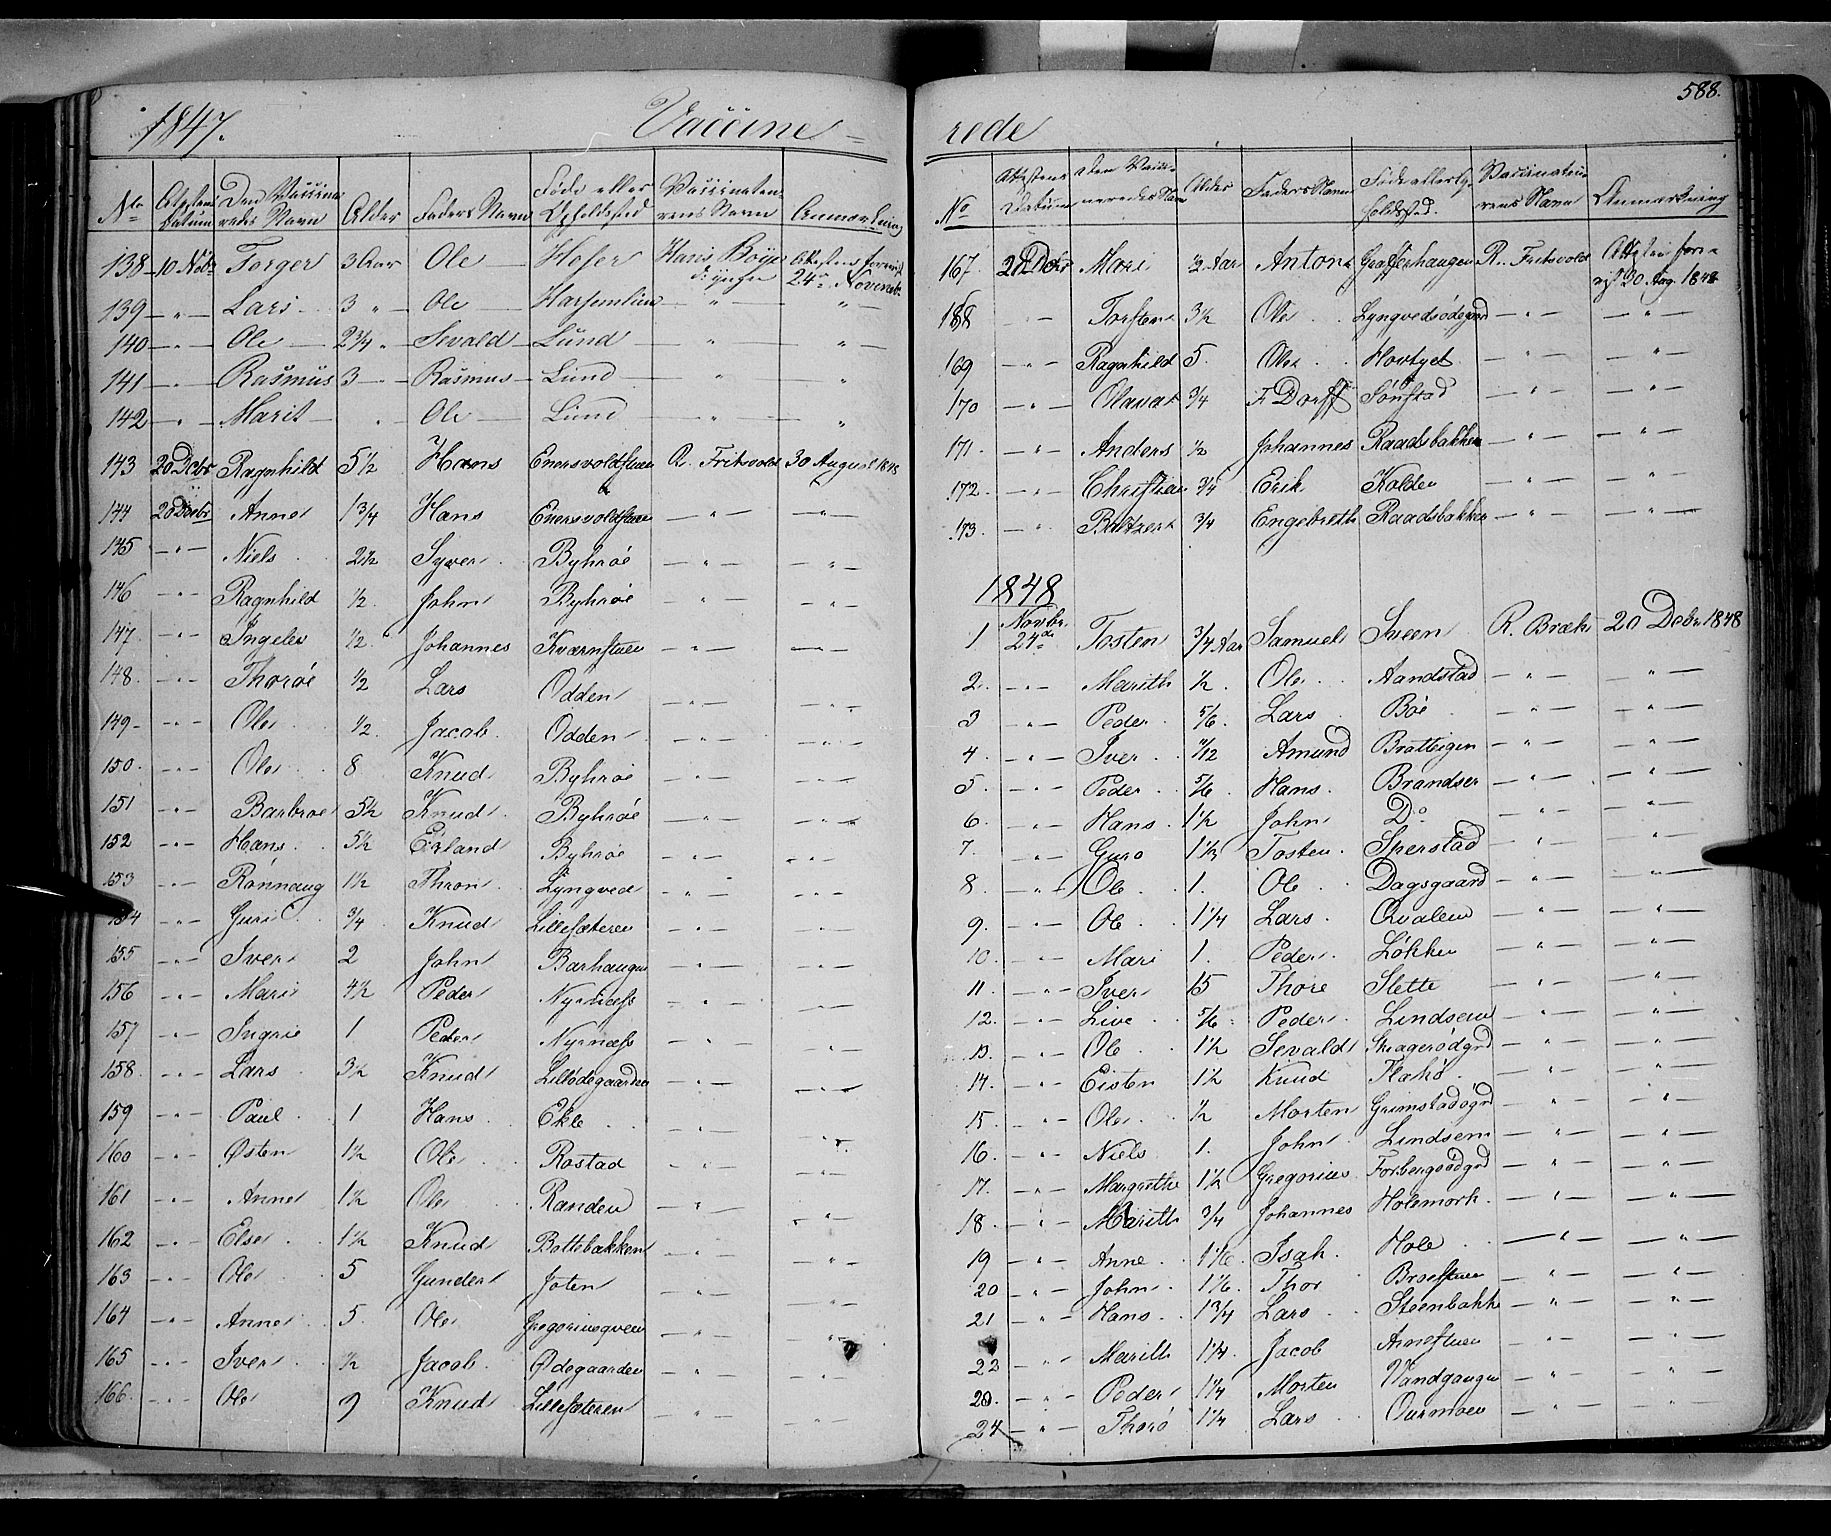 588.
1847. Vaccine-
No Attestens Datum Den Vaccineredes Navn Alder Faders Navn Føde eller Opholdssted Vaccinateurens Navn Anmærkning
138 10 Nobr Torger 3 Aar Ole Hans Bøye Attesten forevist 24 Novembr
139 " Lars 3 " Ole " "
140 " Ole 2 3/4 " Sevald Lund " "
141 " Rasmus 3 Rasmus Lund " "
142 " Marit " Ole Lund " "
143 20 Dcbr Ragnhild 5 1/2 Hans Enersvoldstuen R. Fritsvold 30 August 1848
144 20 Decbr Anne 1 3/4 Hans Enersvoldstuen " "
145 " Niels 2 1/2 Syver Byhrøe " "
146 " Ragnhild 1/2 John Byhrøe " "
147 " Ingeles 1/2 Johannes Kværnstuen " "
148 " Thorøe 1/2 Lars Odden " "
149 " Ole 1/2 Jacob Odden " "
150 " Ole 8 Knud Byhrøe " "
151 " Barbroe 5 1/2 Knud Byhrøe " "
152 " Hans 5 1/2 Erland Byhrøe " "
153 " Rønnaug 1 1/2 Thron Lyngved " "
154 " Guri 3/4 Knud Lillesæteren " "
155 " Iver 2 John Barhaugen " "
156 " Mari 4 1/2 Peder Nyrnæss " "
157 " Ingrie 1 Peder Nyrnæss " "
158 " Lars 3 1/2 Knud Lilleødegaarden " "
159 " Paul 1 Hans Ekle " "
160 " Østen 1 1/2 Ole Rostad " "
161 " Anne 1 1/2 Ole Randen " "
162 " Else 1 1/2 Knud Bottebakken " "
163 " Ole 5 Gunder Joten " "
164 " Anne 5 Ole Gregoriusqveen " "
165 " Iver 1/2 Jacob Ødegaarden " "
166 " Ole 9 Knud Lillesæteren " "
rede
No Attestens Datum den Vaccineredes Navn Alder Faders Navn Føde eller Opholdssted. Vaccinateurens Navn Anmærkning
167 20 Dcbr Mari 1/2 Aar Anton Graffferhaugen R. Fritsvold Attesten forevist 30 Aug. 1848
168 " Torsten 3 1/2 Ole Lyngvedsødegaard " "
169 " Ragnhild 5. Ole Hovtyet " "
170 " Olava 3/4 F Dorff Sønstad " "
171 " Anders 1/2 Johannes Raadsbakken " "
172. " Christian 3/4 Erik Kolden " "
173. " Baltzer 3/4 Engebreth Raadsbakken " "
1848
1 Novbr. 24de Tosten 3/4 Aar Samuel Sveen R. Bræk 20 Decbr 1848
2. " Marith 1/2. Ole Aandstad " "
3 " Peder 5/6. Lars Bøe " "
4 " Iver /12 Amund Bratteigen " "
5. " Peder 5/6. Hans. Brandser " "
6. " Hans 1 1/2 John Do " "
7. " Guro 1 1/2 Tosten Sperstad " "
8. " Ole 1. Ole Dagsgaard " "
9. " Ole 1 1/4 Lars Qvalen " "
10. " Mari 1. Peder Løkken " "
11. " Iver 15 Thore Slette " "
12. " Live 5/6 Peder Lindsem " "
13. " Ole 1 1/2 Sevald Skragerødgrd " "
14. " Eisten 1 1/2 Knud Flakø " "
15. " Ole 1/2 Morten Grimstadødgrd " "
16. " Niels 1. John Lindsem " "
17. " Margrethe 1 1/2 Gregorius Forbergsødgrd " "
18. " Marith 3/4 Johannes Holemork " "
19 " Anne 1 1/6. Isak Hole " "
20 " John 1 1/6. Thor Broestuen " "
21 " Hans 1 3/4 Lars Steenbakke " "
22 " Marith 1 1/4. Jacob Arnestuen " "
23. " Peder 1 1/4 Morten Vandgangen " "
24 " Thorø 1 1/4 Lars Ourmoen " "